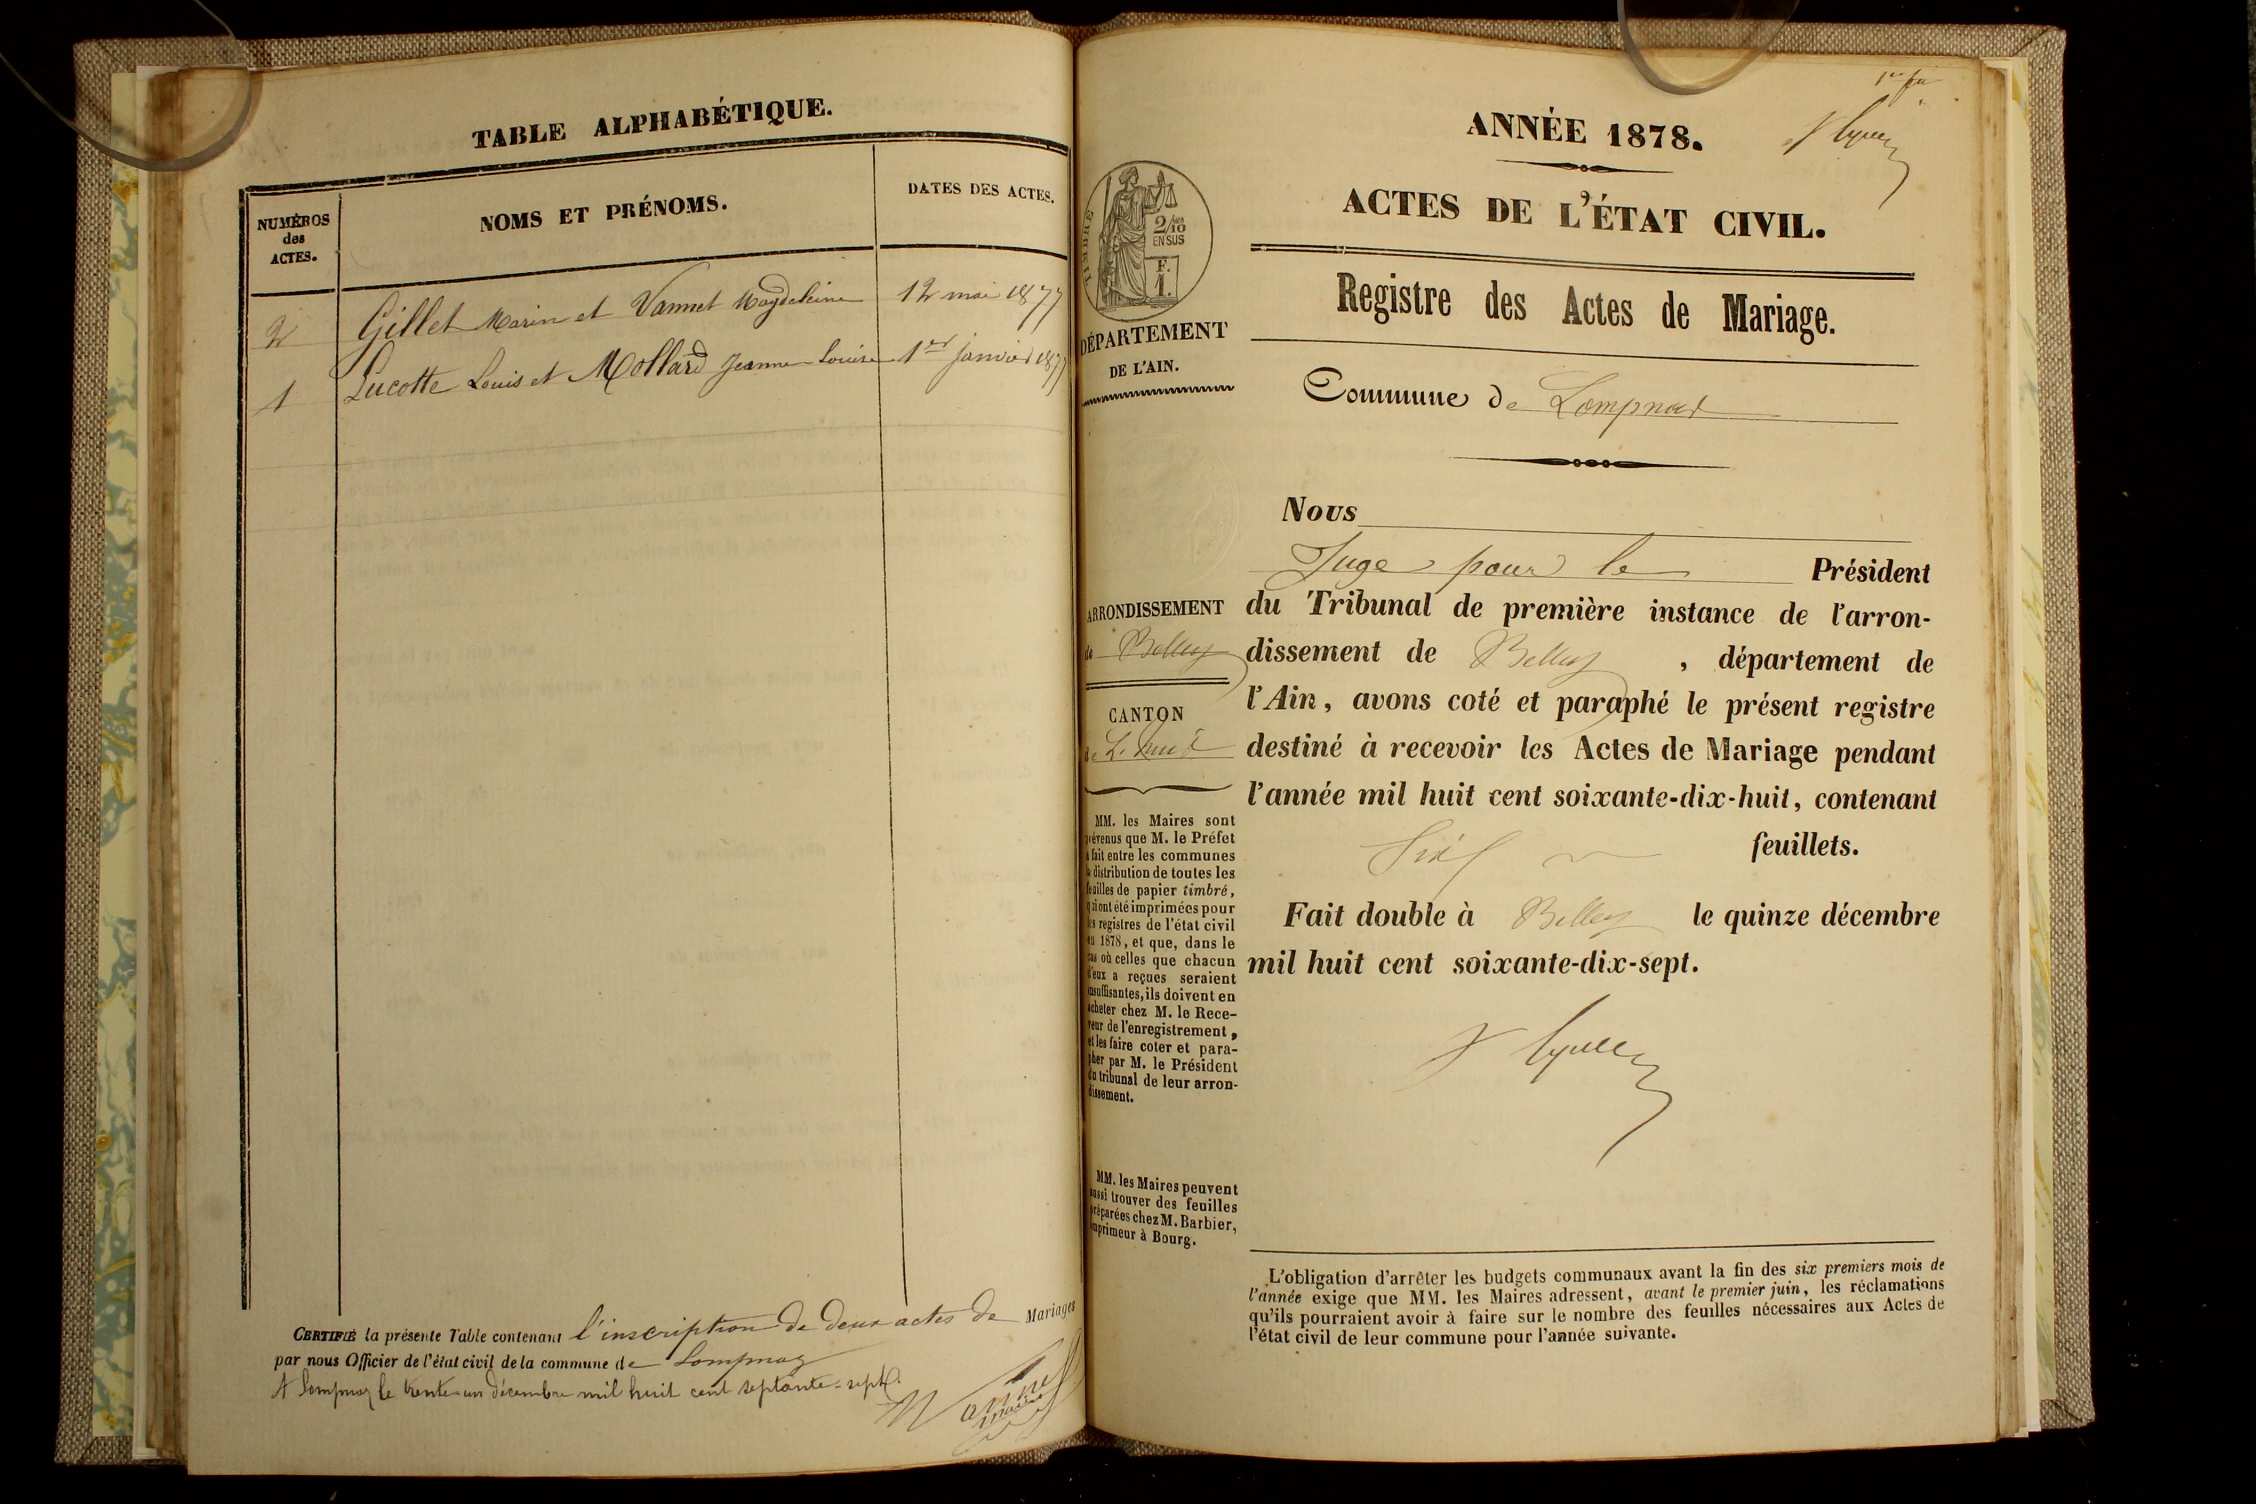 TABLE ALPHABÉTIQUE.
NUMÉROS
des
ACTES.
NOMS ET PRÉNOMS.
DATES DES ACTES.
2 Gillet Marin et Vannet Magdeleine 12 mai 1877
1 Lucotte Louis et Mollard Jeanne Louise 1er janvier 1877
CERTIFIÉ la présente Table contenant l'inscription de deux actes de Mariages
par nous Officier de l'état civil de la commune de Lompnaz
A Lompnaz le trente un décembre mil huit cent septante-sept.
ANNÉE 1878.
ACTES DE L'ÉTAT CIVIL.
Registre des Actes de Mariage.
TIMBRE
2/10
EN SUS
F.
1.
DÉPARTEMENT
DE L'AIN.
Commune de Lompnaz
Nous
Juge pour le Président
du Tribunal de première instance de l'arron-
dissement de Belley, département de
l'Ain, avons coté et paraphé le présent registre
destiné à recevoir les Actes de Mariage pendant
l'année mil huit cent soixante-dix-huit, contenant
feuillets.
Fait double à Belley le quinze décembre
mil huit cent soixante-dix-sept.
ARRONDISSEMENT
de Belley
CANTON
de
MM. les Maires sont
prévenus que M. le Préfet
a fait entre les communes
la distribution de toutes les
feuilles de papier timbré,
qui ont été imprimées pour
les registres de l'état civil
en 1878, et que, dans le
cas où celles que chacun
d'eux a reçues seraient
insuffisantes, ils doivent en
acheter chez M. le Rece-
veur de l'enregistrement,
et les faire coter et para-
pher par M. le Président
du tribunal de leur arron-
dissement.
MM. les Maires peuvent
aussi trouver des feuilles
préparées chez M. Barbier,
imprimeur à Bourg.
L'obligation d'arrêter les budgets communaux avant la fin des six premiers mois de
l'année exige que MM. les Maires adressent, avant le premier juin, les réclamations
qu'ils pourraient avoir à faire sur le nombre des feuilles nécessaires aux Actes de
l'état civil de leur commune pour l'année suivante.